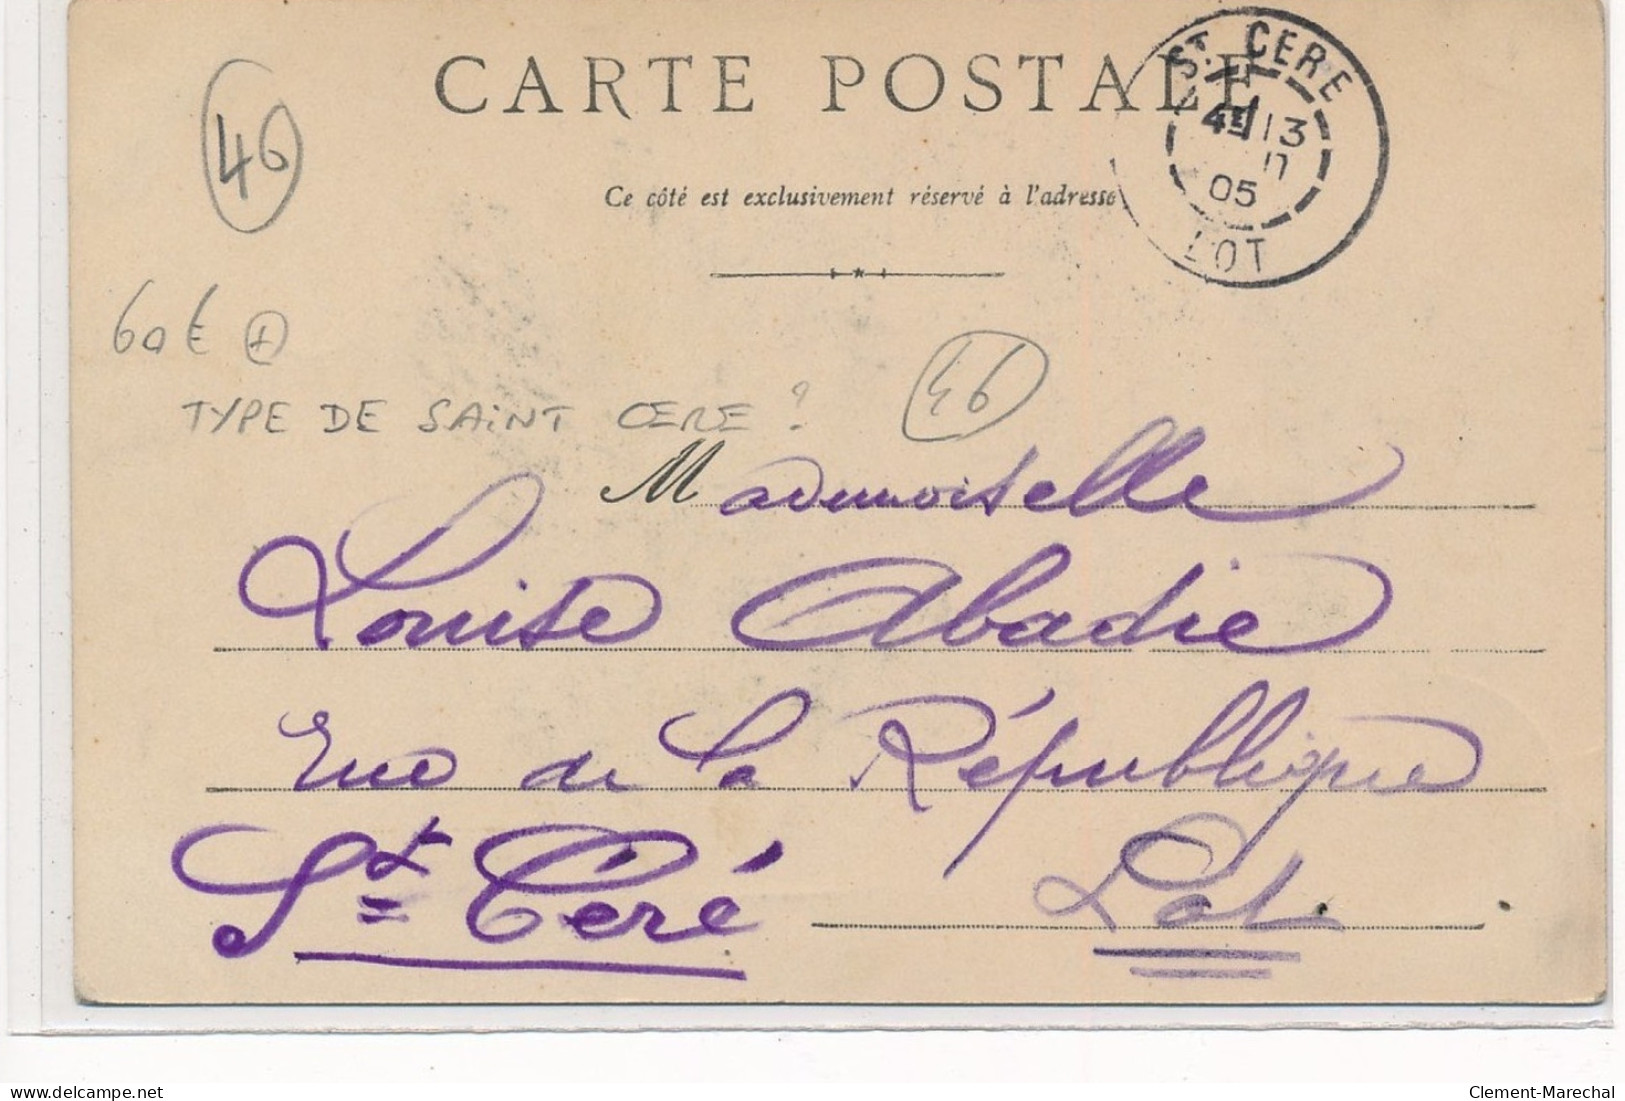 CARTE POSTALE
Ce côté est exclusivement réservé à l'adresse
ST. CERE
4E 13
05
LOT
46
60€ +
TYPE DE SAINT CERE ?
46
Mademoiselle
Louise Abadie
rue de la République
St Céré Lot
delcampe.net
Clement-Marechal